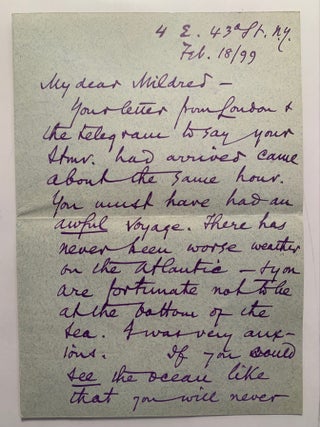 4 E. 43d St. N.Y.
Feb. 18/99
My dear Mildred –
Your letter from London &
the telegram to say your
Stmr. had arrived came
about the same hour.
You must have had an
awful voyage. There has
never been worse weather
on the Atlantic – & you
are fortunate not to be
at the bottom of the
sea. I was very anx-
ious. If you could
see the ocean like
that you will never